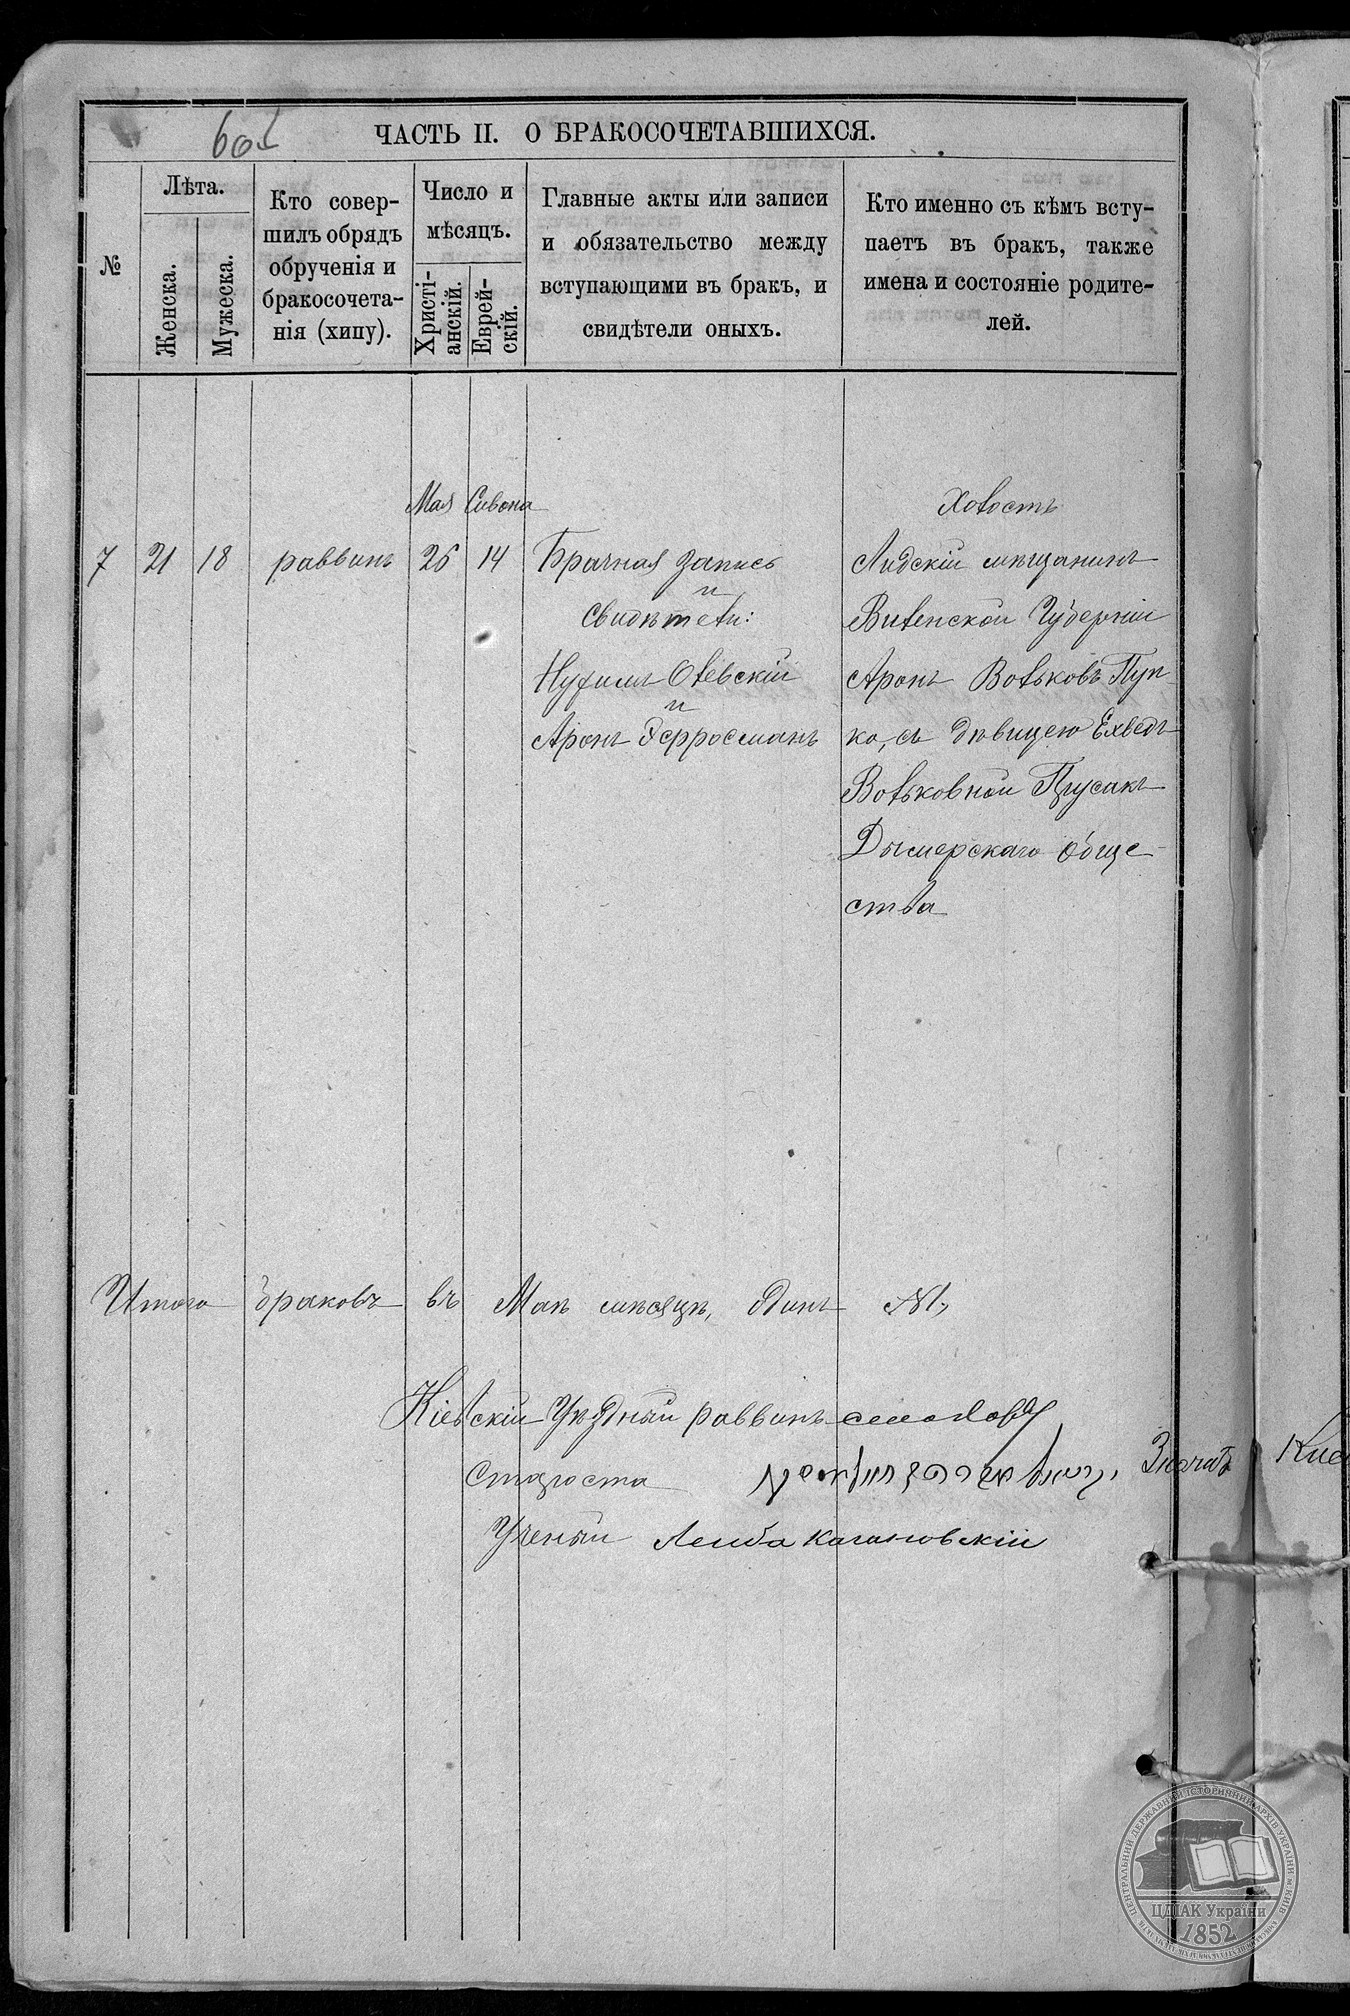 ЧАСТЬ II. О БРАКОСОЧЕТАВШИХСЯ.
№
Лѣта.
Женска.
Мужеска.
Кто совер-
шилъ обрядъ
обрученія и
бракосочета-
нія (хипу).
Число и
мѣсяцъ.
Христі-
анскій.
Еврей-
скій.
Главные акты или записи
и обязательство между
вступающими въ бракъ, и
свидѣтели оныхъ.
Кто именно съ кѣмъ всту-
паетъ въ бракъ, также
имена и состояніе родите-
лей.
Мая Сивона
Холость
7 21 18 раввинъ 26 14 Брачная запись
и
Свидѣтели:
Нухимъ Олевскій
и
Аронъ
Лидскій мѣщанинъ
Виленской Губерніи
Аронъ Вольковъ Пуп-
ко, съ дѣвицею Ехведъ
Вольковной Прусакъ
Дымерскаго обще-
ства
Итого браковъ въ Маѣ мѣсяцѣ, одинъ №1,
Кіевскій Уѣздный раввинъ
Староста
Ученый Лейба Кагановскій
ЦЕНТРАЛЬНИЙ ДЕРЖАВНИЙ ІСТОРИЧНИЙ АРХІВ УКРАЇНИ м. КИЇВ
ЦДІАК України
1852